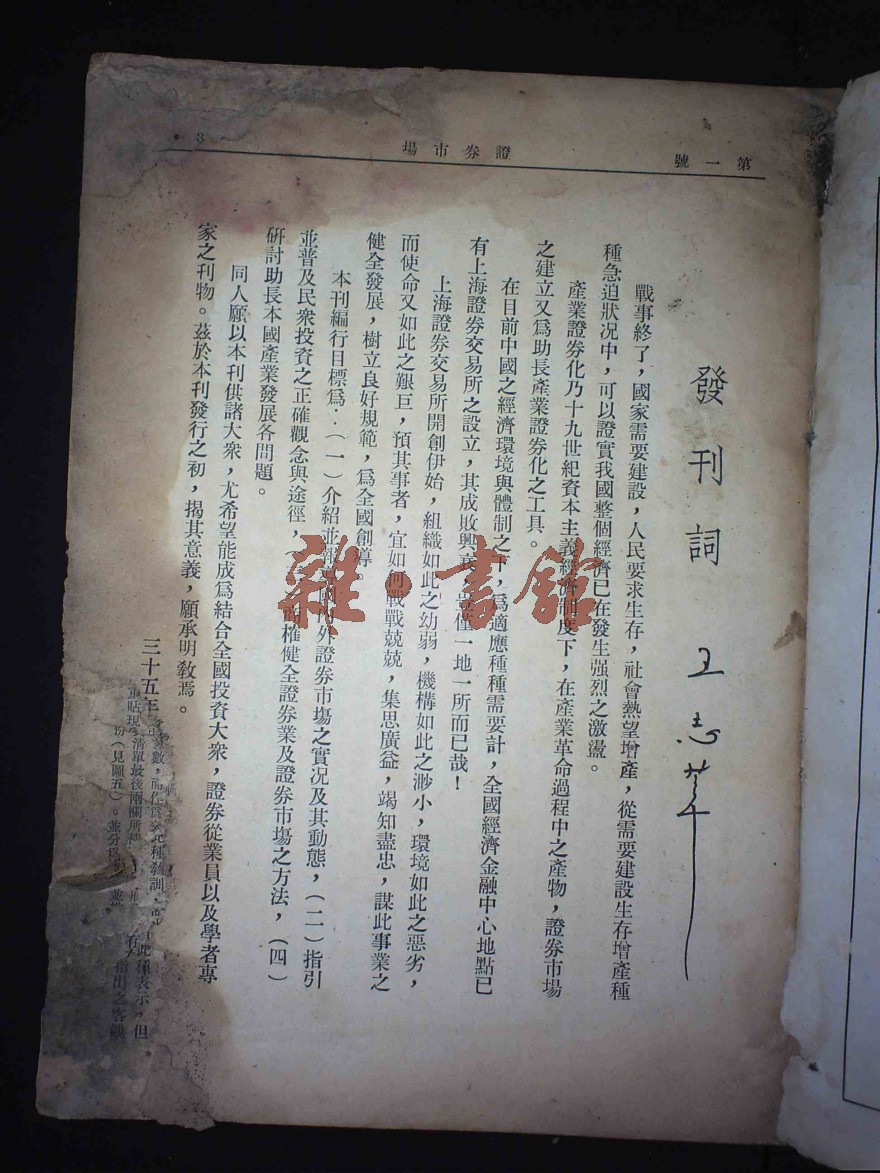 第一號
證券市場
3
發刊詞
王志莘
戰事終了，國家需要建設，人民要求生存，社會熱望增產，從需要建設生存增產種
種急迫狀況中，可以證實我國整個經濟已在發生强烈之激盪。
產業證券化乃十九世紀資本主義經濟制度下，在產業革命過程中之產物，證券市場
之建立又爲助長產業證券化之工具。
在目前中國之經濟環境與體制之下，爲適應種種需要計，全國經濟金融中心地點已
有上海證券交易所之設立，其成敗興衰，豈僅一地一所而已哉！
上海證券交易所開創伊始，組織如此之幼弱，機構如此之渺小，環境如此之惡劣，
而使命又如此之艱巨，預其事者，宜如何戰戰兢兢，集思廣益，竭知盡忠，謀此事業之
健全發展，樹立良好規範，爲全國創導。
本刊編行目標爲：（一）介紹並國內外證券市場之實況及其動態，（二）指引
並普及民衆投資之正確觀念與途徑，商榷健全證券業及證券市場之方法，（四）
研討助長本國產業發展各問題。
同人願以本刊供諸大衆，尤希望能成爲結合全國投資大衆，證券從業員以及學者專
家之刊物。茲於本刊發行之初，揭其意義，願承明敎焉。
三十五年
數，而作爲種敎訓，此種表示，但
貼現清單最後兩欄所
份（見圖五）。並分 指出之客觀
雜·書館